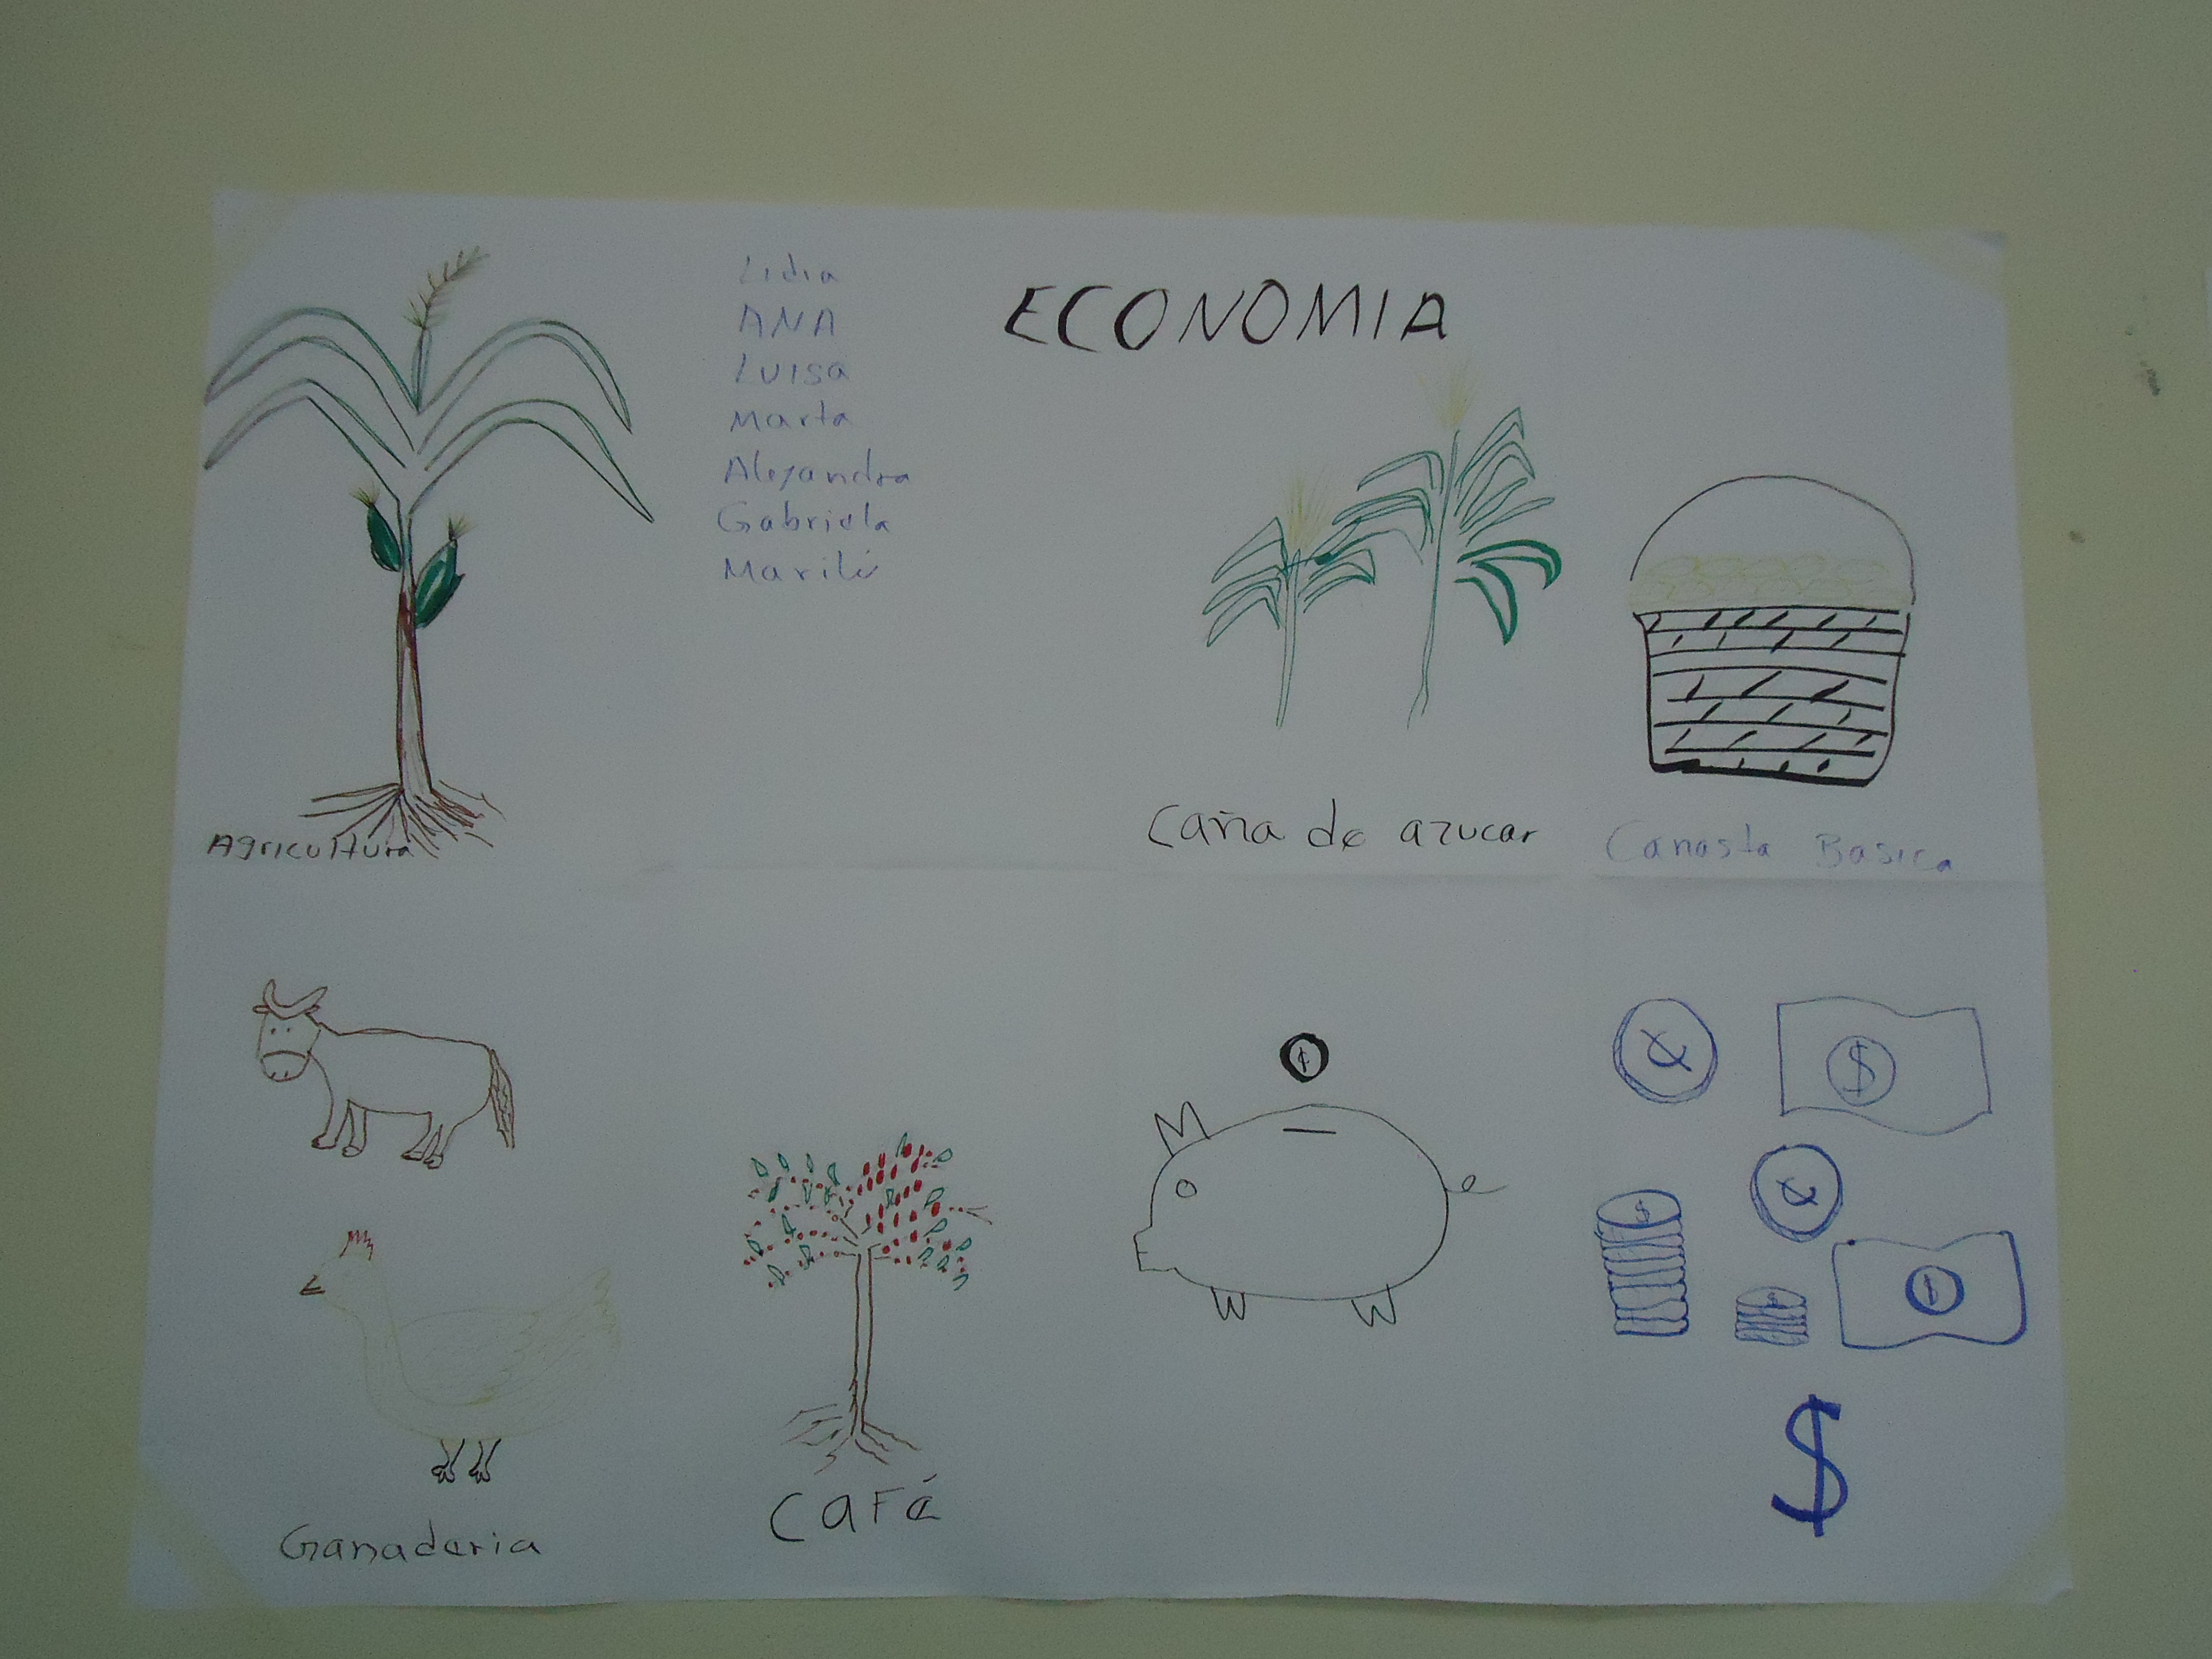 Lidia
ANA
Luisa
Marta
Alejandra
Gabriela
Marilú
ECONOMIA
Agricultura
Caña de azucar
Canasta Basica
Ganaderia
CAFÉ
$
$
$
$
$